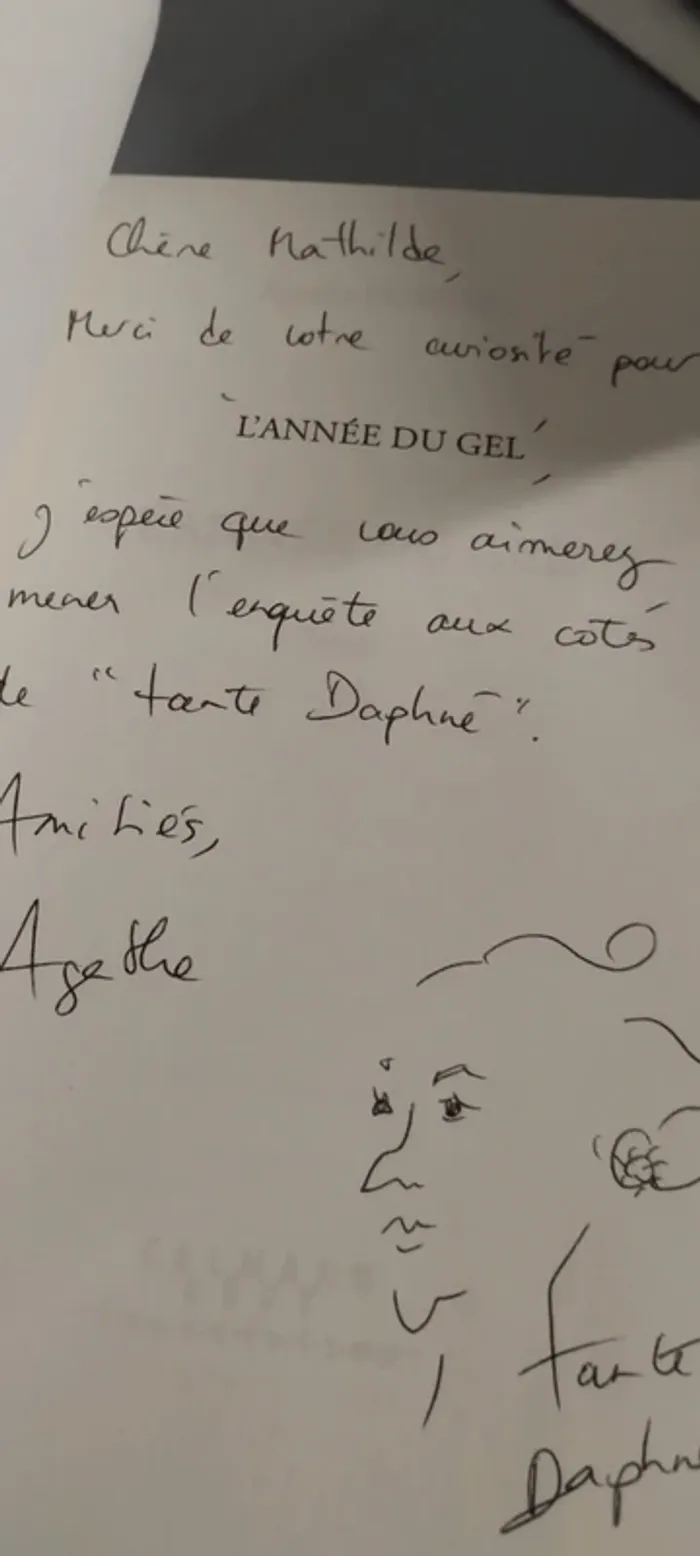 Chère Mathilde,
Merci de votre curiosité pour
"L'ANNÉE DU GEL",
j'espère que vous aimerez
mener l'enquête aux côtés
de "tante Daphné".
Amitiés,
Agathe
tante
Daphn